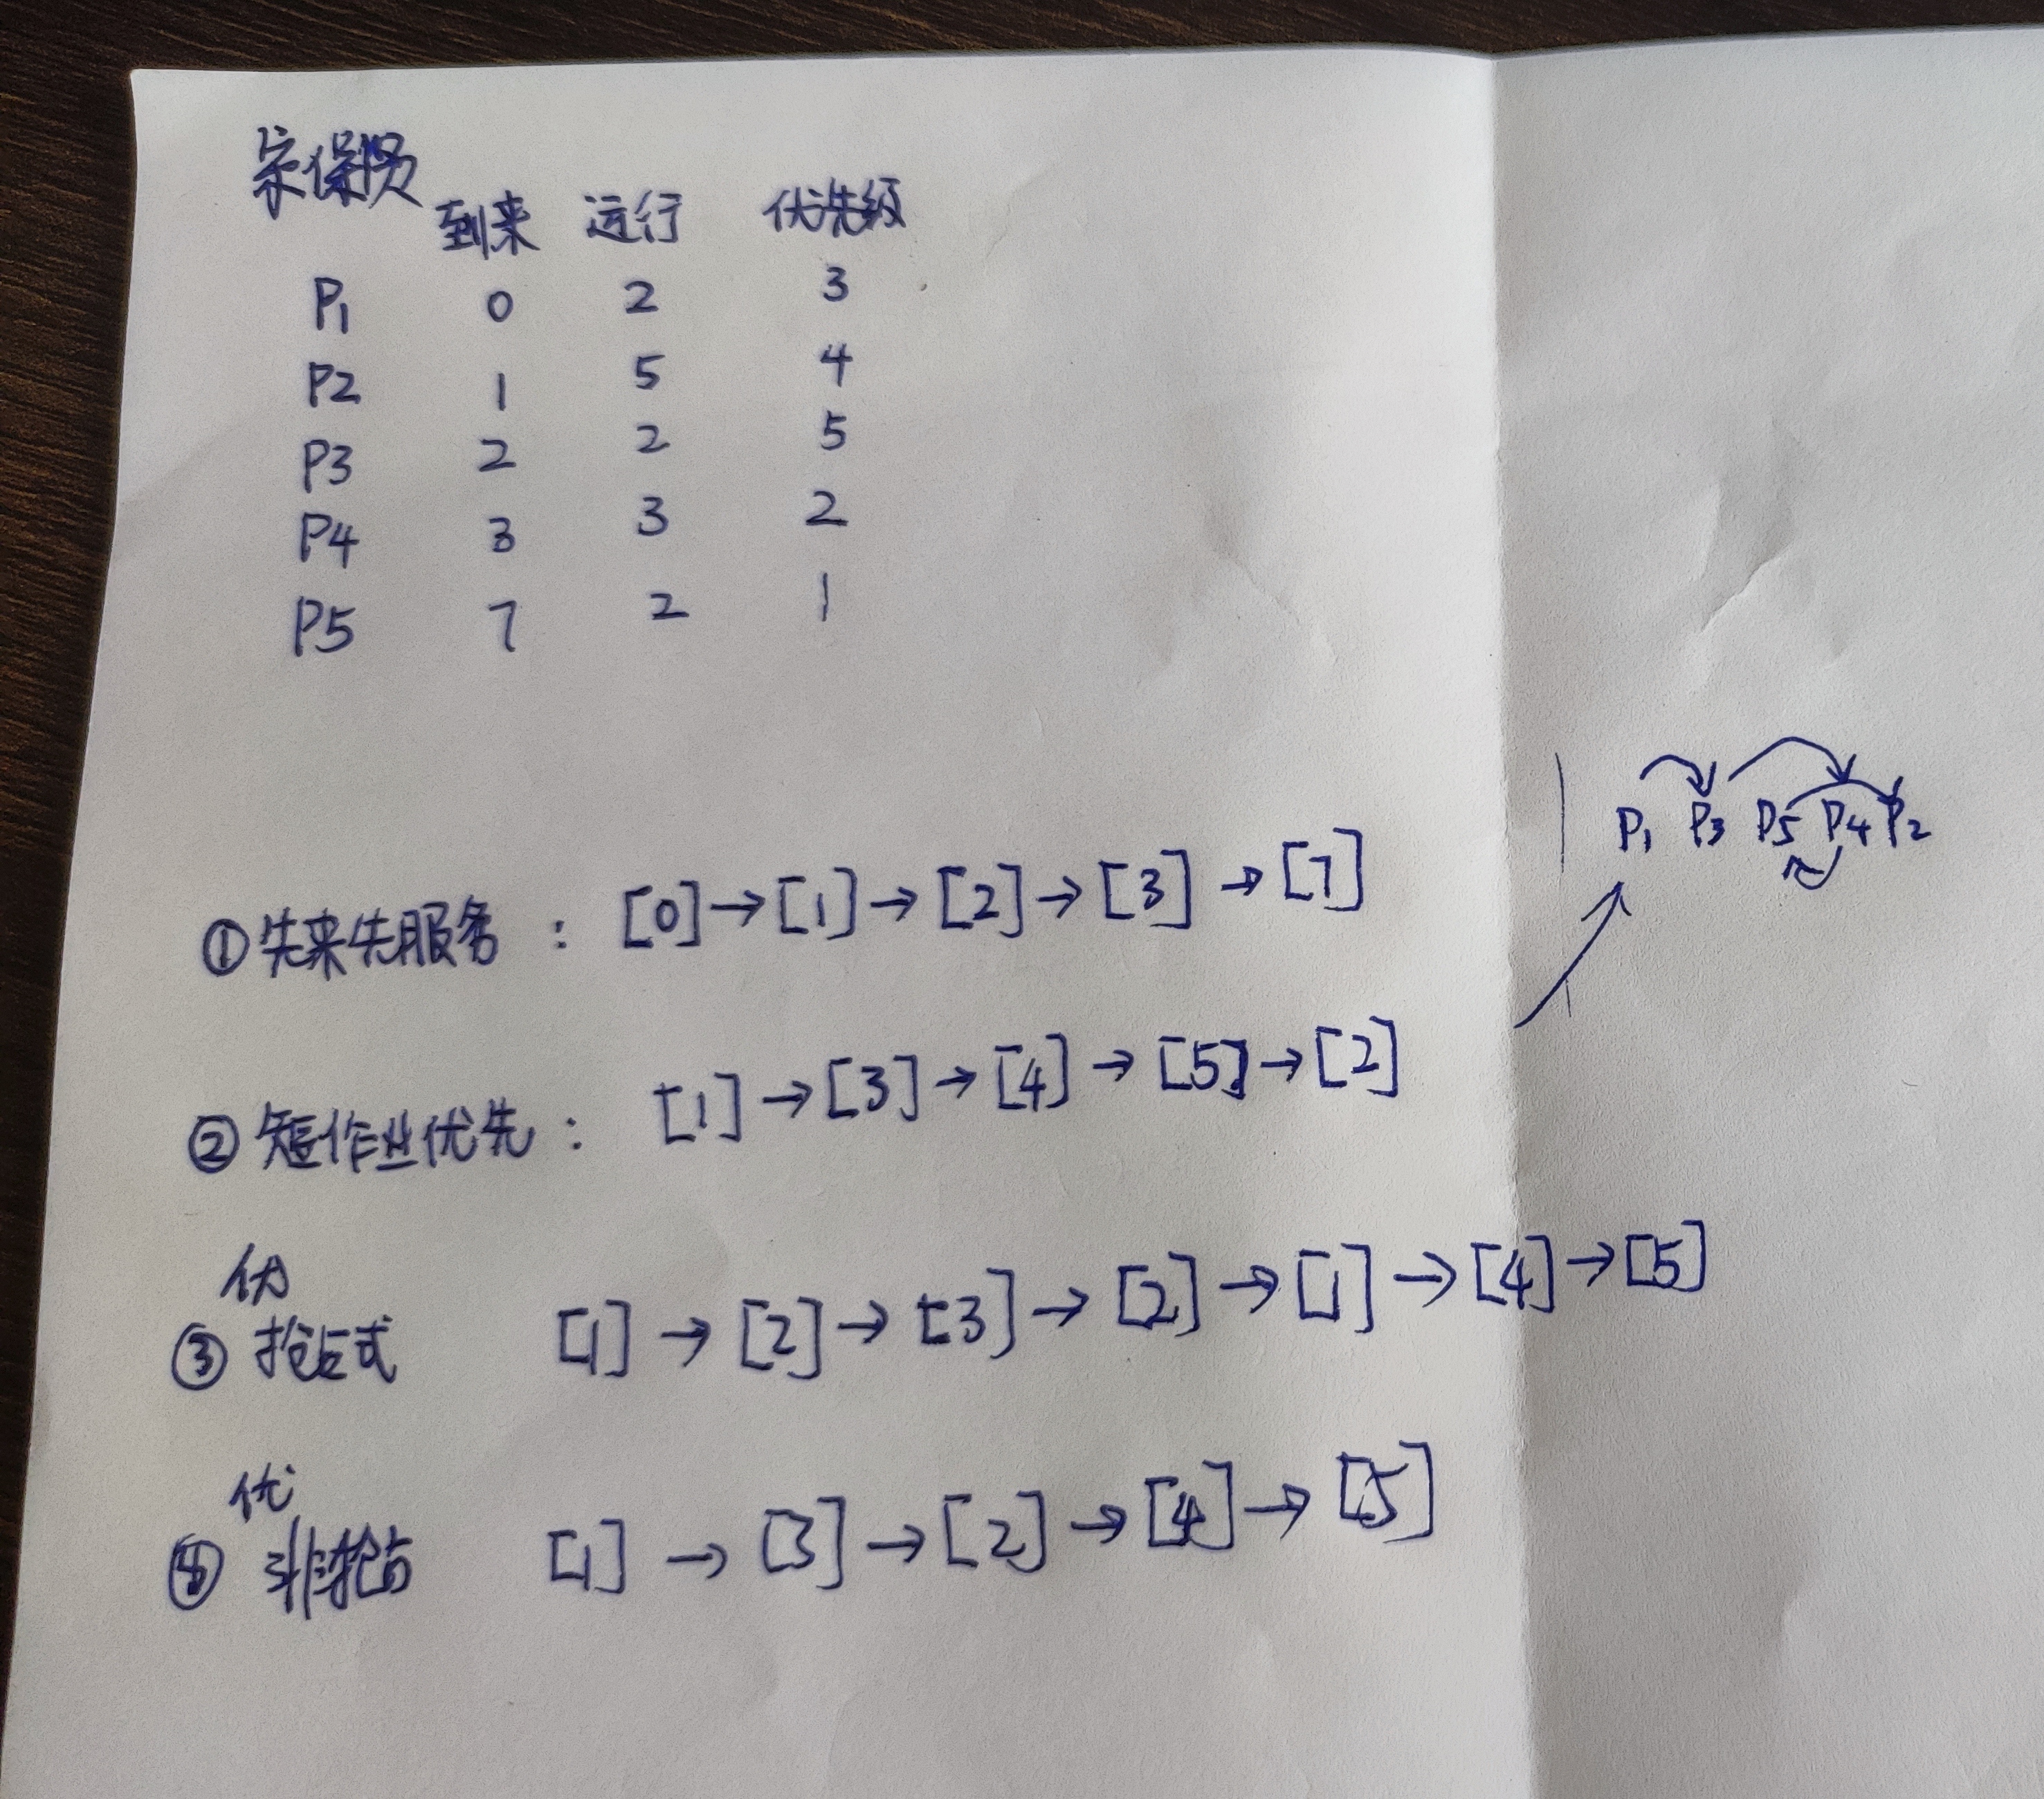 宗保贤
到来 运行 优先级
P1 0 2 3
P2 1 5 4
P3 2 2 5
P4 3 3 2
P5 7 2 1
P1 P3 P5 P4 P2
①先来先服务 : [0]→[1]→[2]→[3]→[7]
②短作业优先 : [1]→[3]→[4]→[5]→[2]
优
③抢占式 [1]→[2]→[3]→[2]→[1]→[4]→[5]
优
④非抢占 [1]→[3]→[2]→[4]→[5]